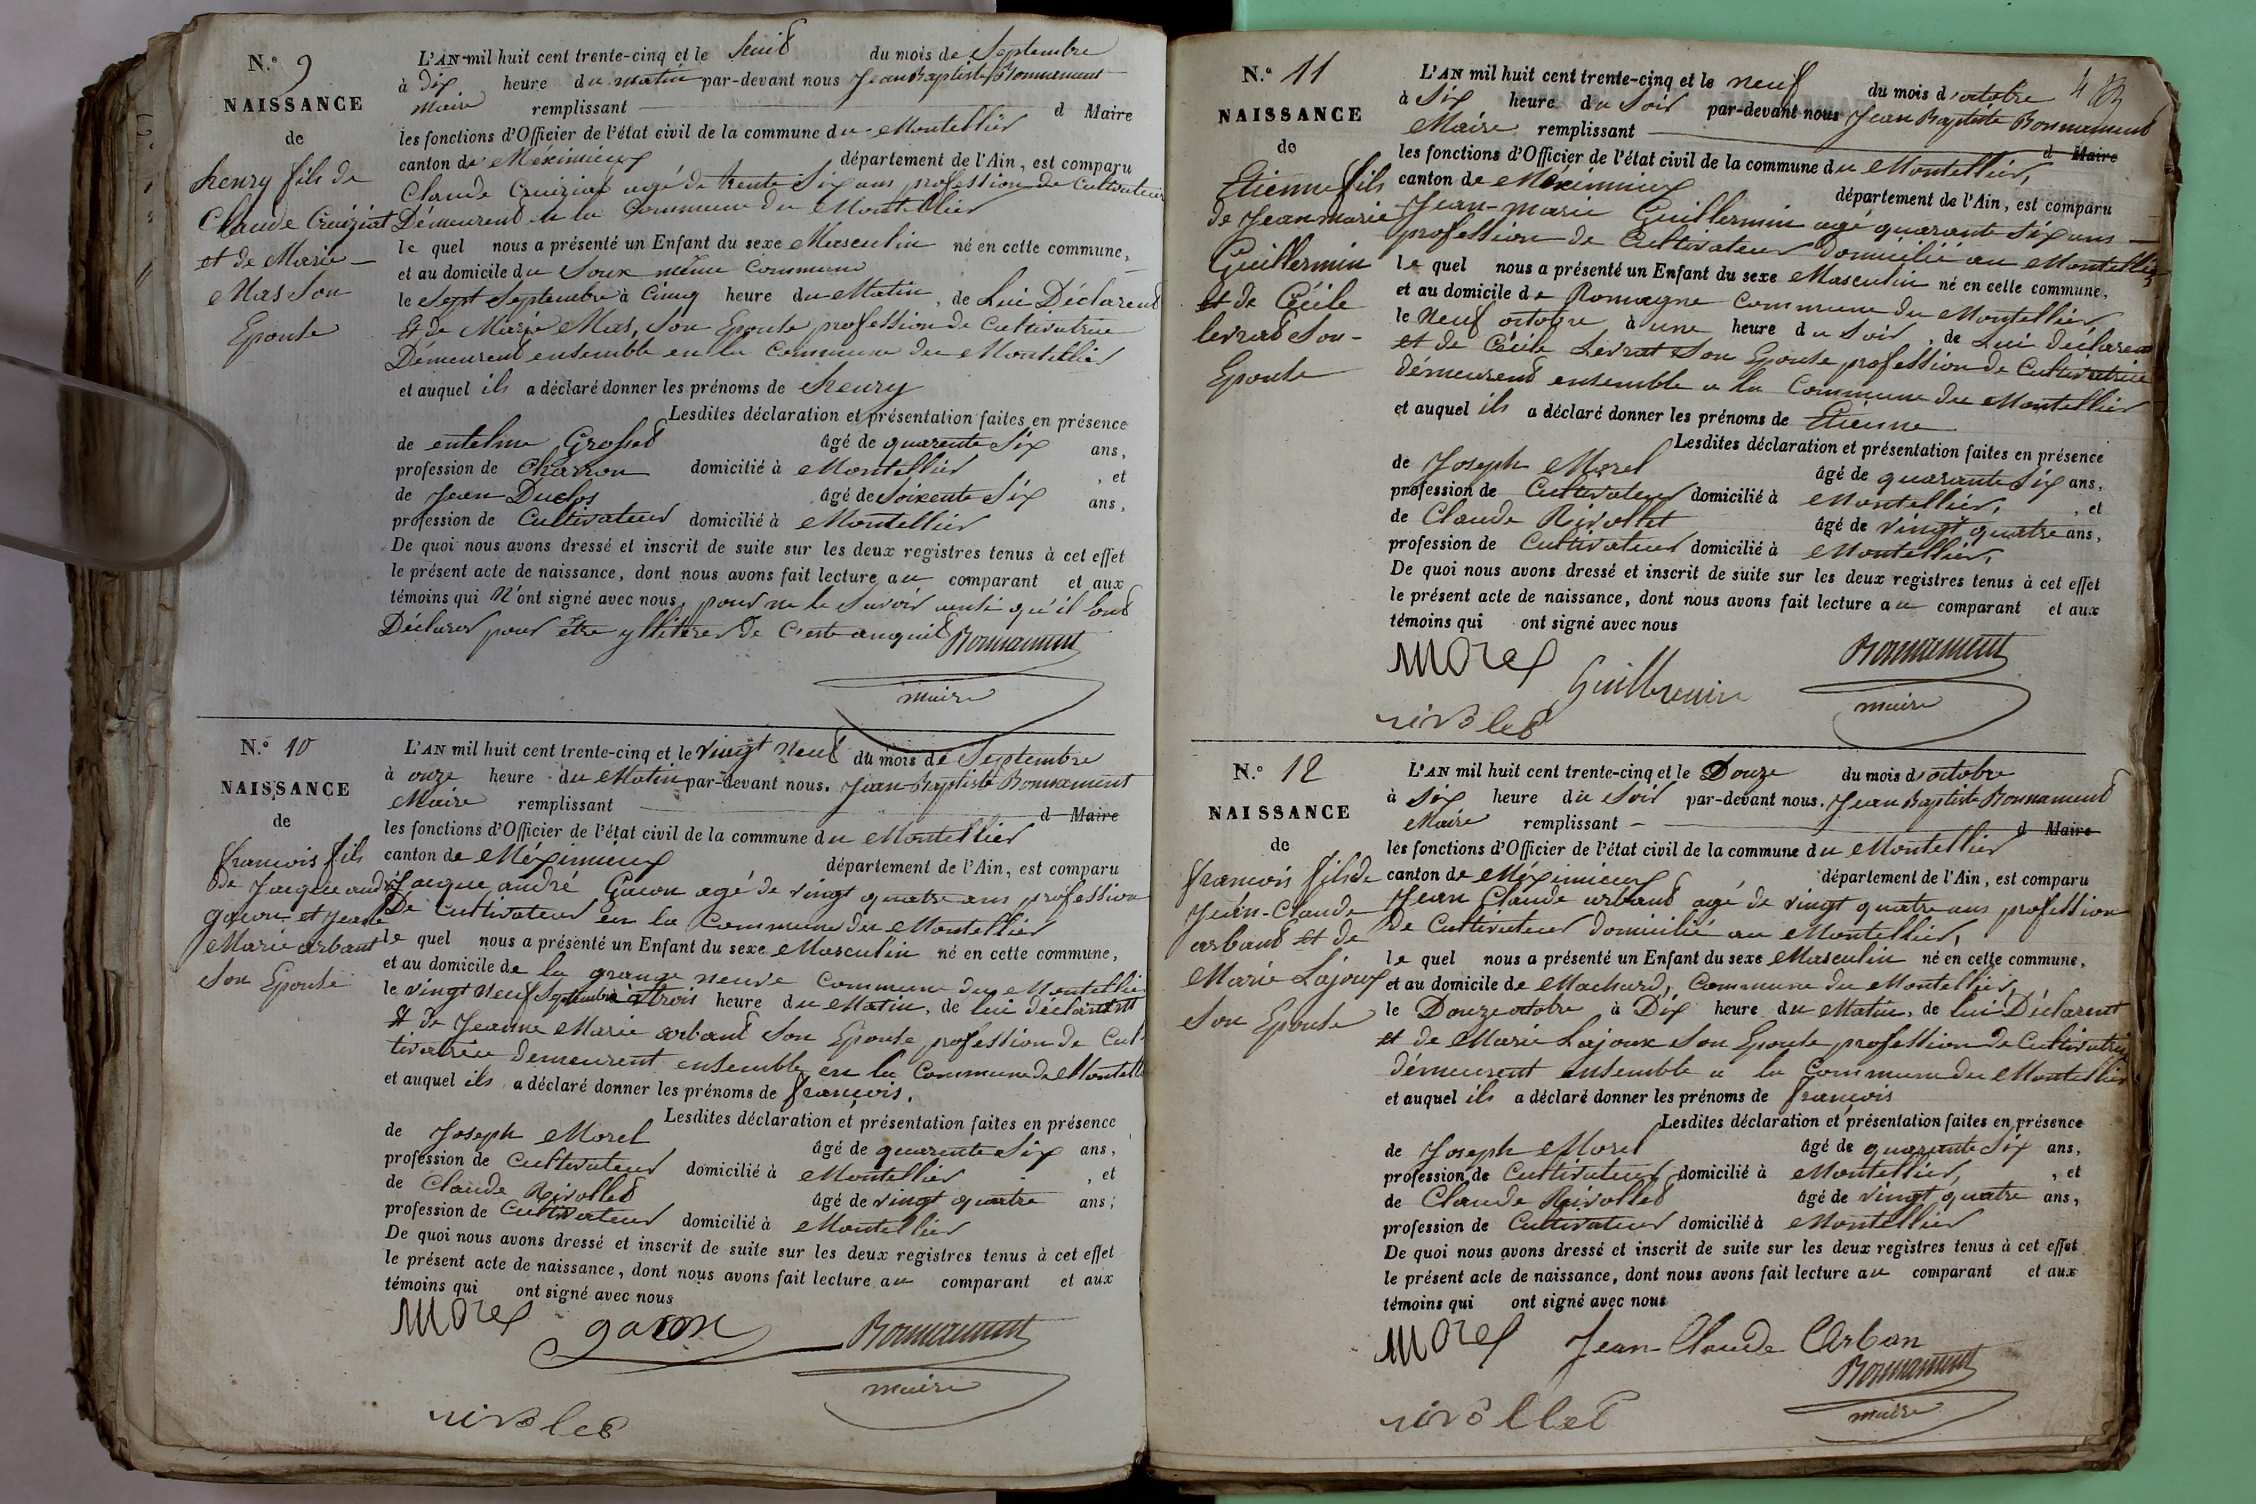 N.° 9
NAISSANCE
de
henry fils de
Claude Cruiziat
et de Marie
Mas Son
Epouse
L'AN mil huit cent trente-cinq et le huit du mois de Septembre
à dix heure du matin par-devant nous Jean Baptiste Bonnament
Maire remplissant d Maire
les fonctions d'Officier de l'état civil de la commune du Montellier
canton de Méximieux département de l'Ain, est comparu
Claude Cruiziat agé de trente Six ans profession de Cultivateur
Démeurent en la Commune du Montellier
le quel nous a présenté un Enfant du sexe Masculin né en cette commune,
et au domicile du Soux même Commune
le Sept Septembre à Cinq heure du Matin, de Lui Déclarent
Et de Marie Mas, Son Epouse profession de Cultivatrice
Démeurent ensemble en la Commune du Montellier
et auquel ils a déclaré donner les prénoms de henry
Lesdites déclaration et présentation faites en présence
de entelme Grosset âgé de quarente Six ans,
profession de Charron domicilié à Montellier, et
de Jean Duclos âgé de Soixente Six ans,
profession de Cultivateur domicilié à Montellier
De quoi nous avons dressé et inscrit de suite sur les deux registres tenus à cet effet
le présent acte de naissance, dont nous avons fait lecture au comparant et aux
témoins qui N'ont signé avec nous, pour ne le Savoir ainsi qu'il l'ont
Déclarer pour être yllitérer de C'este enquis Bonnament
maire
N.° 10
NAISSANCE
de
francois fils
de Jacque andré
gacon et Jeanne
Marie arbant
Son Epouse
L'AN mil huit cent trente-cinq et le vingt Neuf du mois de Septembre
à onze heure du Matin par-devant nous. Jean-Baptiste Bonnament
Maire remplissant d Maire
les fonctions d'Officier de l'état civil de la commune du Montellier
canton de Méximieux département de l'Ain, est comparu
Jacque andré Gacon agé de vingt quatre ans profession
De Cultivateur en la Commune du Montellier
le quel nous a présenté un Enfant du sexe Masculin né en cette commune,
et au domicile de la grange neuve Commune du Montellier
le vingt Neuf Septembre à trois heure du Matin, de lui déclarent
Et de Jeanne Marie arbant Son Epouse profession de Cul-
tivatrice demeurent ensemble en la Commune de Montell
et auquel ils a déclaré donner les prénoms de francois.
Lesdites déclaration et présentation faites en présence
de Joseph Morel âgé de quarente Six ans,
profession de Cultivateur domicilié à Montellier, et
de Claude Rivollet âgé de vingt quatre ans;
profession de Cultivateur domicilié à Montellier
De quoi nous avons dressé et inscrit de suite sur les deux registres tenus à cet effet
le présent acte de naissance, dont nous avons fait lecture au comparant et aux
témoins qui ont signé avec nous
morel gacon Bonnament
maire
rivolet
N.° 11
NAISSANCE
de
Etienne fils
de Jean marie
Guillermin
et de Cécile
levrat Son
Epouse
L'AN mil huit cent trente-cinq et le neuf du mois d'octobre 4
à Six heure du Soir par-devant nous Jean Baptiste Bonnament
Maire remplissant d Maire
les fonctions d'Officier de l'état civil de la commune du Montellier,
canton de Méximieux département de l'Ain, est comparu
Jean-marie Guillermin agé quarante Six ans
profession de Cultivateur domicilié au Montellier
le quel nous a présenté un Enfant du sexe Masculin né en cette commune,
et au domicile de Romagne Commune du Montellier
le Neuf octobre à une heure du Soir, de Lui déclarent
et de Cécile Levrat Son Epouse profession de Cultivatrice
démeurent ensemble a la Commune du Montellier
et auquel ils a déclaré donner les prénoms de Etienne
Lesdites déclaration et présentation faites en présence
de Joseph Morel âgé de quarante Six ans,
profession de Cultivateur domicilié à Montellier, et
de Claude Rivollet âgé de vingt quatre ans,
profession de Cultivateur domicilié à Montellier,
De quoi nous avons dressé et inscrit de suite sur les deux registres tenus à cet effet
le présent acte de naissance, dont nous avons fait lecture au comparant et aux
témoins qui ont signé avec nous
morel Guillermin Bonnament
maire
rivolet
N.° 12
NAISSANCE
de
francois fils de
Jean-Claude
arbant et de
Marie Lajoux
Son Epouse
L'AN mil huit cent trente-cinq et le Douze du mois d'octobre
à Six heure du Soir par-devant nous. Jean Baptiste Bonnament
Maire remplissant d Maire
les fonctions d'Officier de l'état civil de la commune du Montellier
canton de Méximieux département de l'Ain, est comparu
Jean Claude arbant agé de vingt quatre ans profession
De Cultivateur domicilié au Montellier,
le quel nous a présenté un Enfant du sexe Masculin né en cette commune,
et au domicile de Machard, Commune du Montellier,
le Douze octobre à Dix heure du Matin, de lui Déclarent
et de Marie Lajoux Son Epouse profession de Cultivatrice
démeurent ensemble a la Commune du Montellier
et auquel ils a déclaré donner les prénoms de francois
Lesdites déclaration et présentation faites en présence
de Joseph Morel âgé de quarante Six ans,
profession de Cultivateur domicilié à Montellier, et
de Claude Rivollet âgé de vingt quatre ans,
profession de Cultivateur domicilié à Montellier
De quoi nous avons dressé et inscrit de suite sur les deux registres tenus à cet effet
le présent acte de naissance, dont nous avons fait lecture au comparant et aux
témoins qui ont signé avec nous
morel Jean-Claude Arban
Bonnament
maire
rivollet